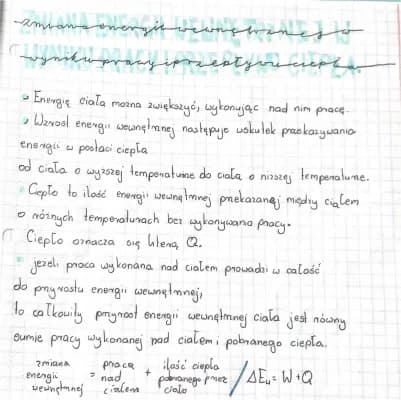 zmiana energii wewnętrznej w
wyniku pracy i przepływu ciepła
Energię ciała można zwiększyć, wykonując nad nim pracę.
Wzrost energii wewnętrznej następuje wskutek przekazywania
energii w postaci ciepła
od ciała o wyższej temperaturze do ciała o niższej temperaturze.
Ciepło to ilość energii wewnętrznej przekazanej między ciałem
o różnych temperaturach bez wykonywania pracy.
Ciepło oznacza się literą Q.
jeżeli praca wykonana nad ciałem prowadzi w całość
do przyrostu energii wewnętrznej,
to całkowity przyrost energii wewnętrznej ciała jest równy
sumie pracy wykonanej nad ciałem i pobranego ciepła.
zmiana energii wewnętrznej = praca nad ciałem + ilość ciepła pobranego przez ciało / ΔEw = W+Q